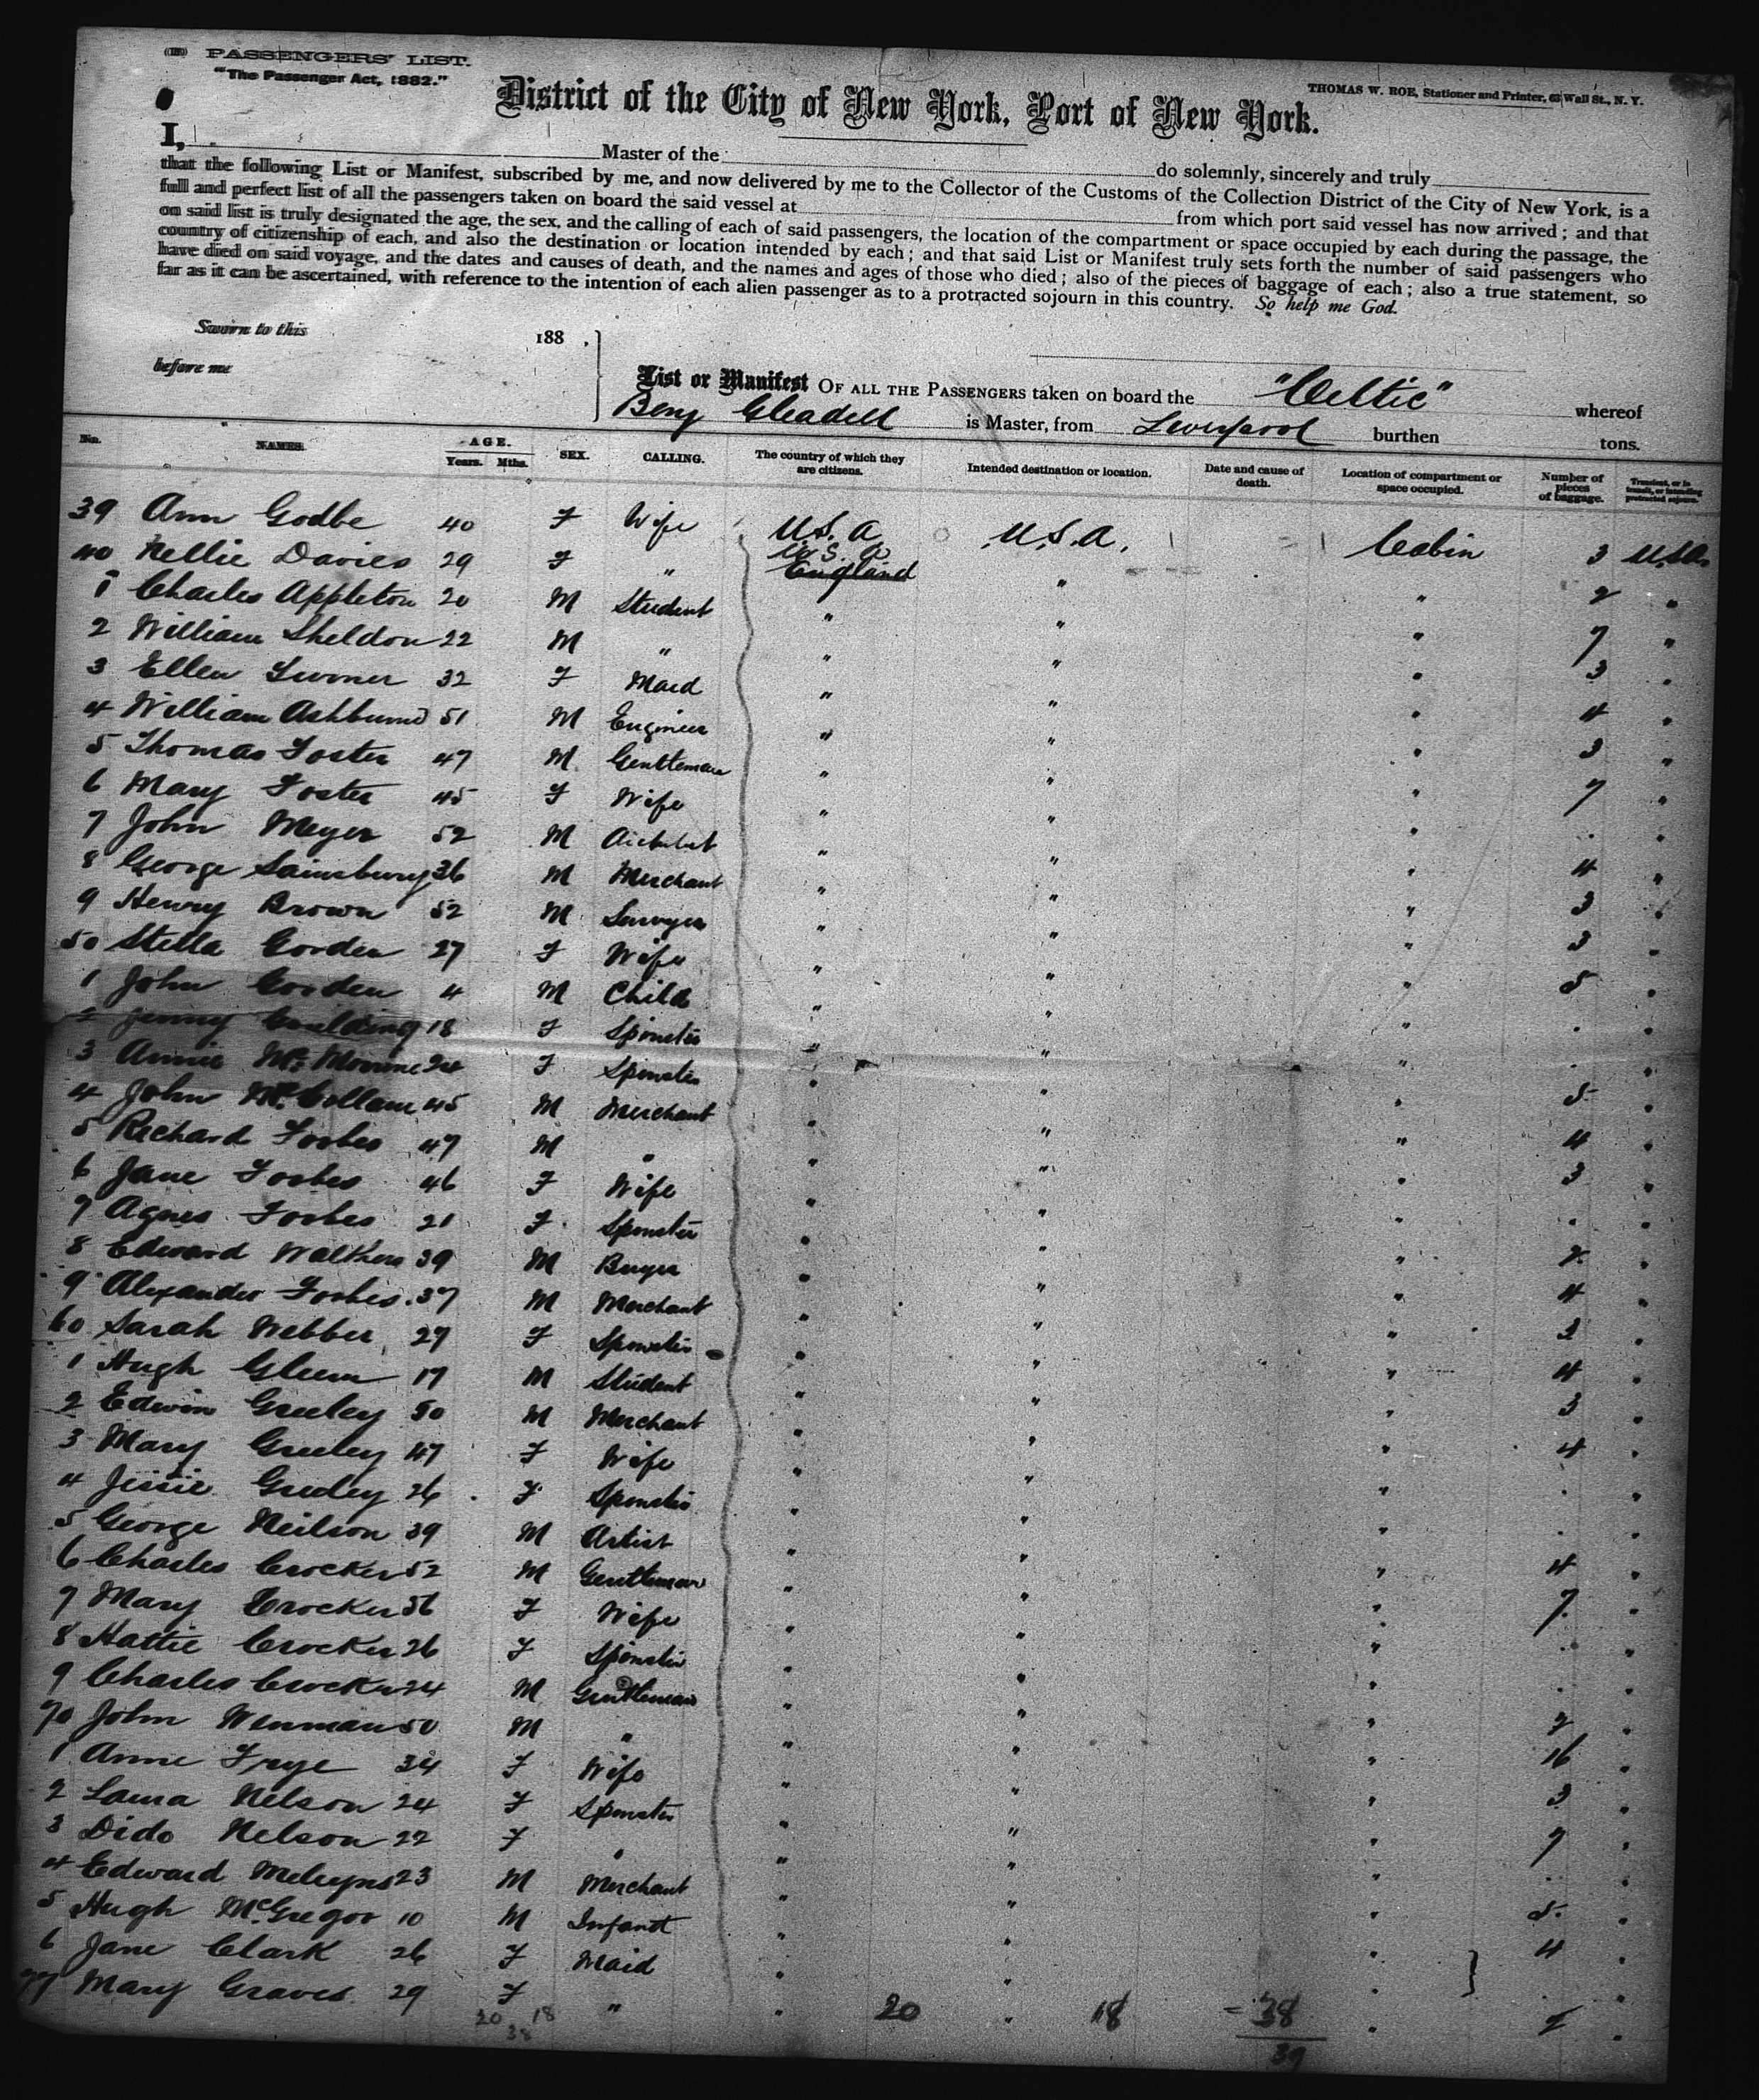 (III) PASSENGERS' LIST.
"The Passenger Act, 1882."
THOMAS W. ROE, Stationer and Printer, 63 Wall St., N. Y.
District of the City of New York, Port of New York.
I, Master of the do solemnly, sincerely and truly
that the following List or Manifest, subscribed by me, and now delivered by me to the Collector of the Customs of the Collection District of the City of New York, is a
full and perfect list of all the passengers taken on board the said vessel at from which port said vessel has now arrived; and that
on said list is truly designated the age, the sex, and the calling of each of said passengers, the location of the compartment or space occupied by each during the passage, the
country of citizenship of each, and also the destination or location intended by each; and that said List or Manifest truly sets forth the number of said passengers who
have died on said voyage, and the dates and causes of death, and the names and ages of those who died; also of the pieces of baggage of each; also a true statement, so
far as it can be ascertained, with reference to the intention of each alien passenger as to a protracted sojourn in this country. So help me God.
Sworn to this 188 ,
before me
List or Manifest OF ALL THE PASSENGERS taken on board the "Celtic" whereof
Benj Gleadell is Master, from Liverpool burthen tons.
No. NAMES. AGE. Years. Mths. SEX. CALLING. The country of which they are citizens. Intended destination or location. Date and cause of death. Location of compartment or space occupied. Number of pieces of baggage. Transient, or in transit, or intending protracted sojourn.
39 Ann Godbe 40 F Wife U.S.A U.S.A. Cabin 3 U.S.A.
40 Nellie Davies 29 F " U.S.A England " " 2 "
1 Charles Appleton 20 M Student " " " 7 "
2 William Sheldon 22 M " " " " 3 "
3 Ellen 32 F Maid " " " 4 "
4 William 51 M Engineer " " " 3 "
5 Thomas Foster 47 M Gentleman " " " 7 "
6 Mary Foster 45 F Wife " " " . "
7 John Meyer 52 M " " " 4 "
8 George Sainsbury 36 M Merchant " " " 3 "
9 Henry Brown 52 M " " " 3 "
50 Stella Gorden 27 F Wife " " " 5 "
1 John Gorden 4 M Child " " " . "
2 Jenny Goulding 18 F Spinster " " " . "
3 Annie F Spinster " " " 5 "
4 John McCollam 45 M Merchant " " " 4 "
5 Richard Forbes 47 M " " " " 3 "
6 Jane Forbes 46 F Wife " " " . "
7 Agnes Forbes 21 F Spinster " " " "
8 Edward 39 M Buyer " " " 4 "
9 Alexander Forbes 37 M Merchant " " " "
60 Sarah Webber 29 F Spinster " " " 4 "
1 Hugh Glenn 17 M Student " " " 3 "
2 Edwin Greeley 50 M Merchant " " " 4 "
3 Mary Greeley 47 F Wife " " " . "
4 Jessie Greeley 26 F Spinster " " " . "
5 George Neilson 39 M Artist " " " 4 "
6 Charles Crocker 52 M Gentleman " " " 7 "
7 Mary Crocker 56 F Wife " " " . "
8 Hattie Crocker 26 F Spinster " " " . "
9 Charles Crocker 24 M Gentleman " " " "
70 John Wenman 50 M " " " " 16 "
1 Anne Frye 34 F Wife " " " 3 "
2 Laura Nelson 24 F Spinster " " " 7 "
3 Dido Nelson 22 F " " " " . "
4 Edward 23 M Merchant " " " "
5 Hugh McGregor 10 M Infant " " " 4 "
6 Jane Clark 26 F Maid " " " . "
77 Mary Graves 29 F " " " " "
20 18 20 18 = 38
38 39